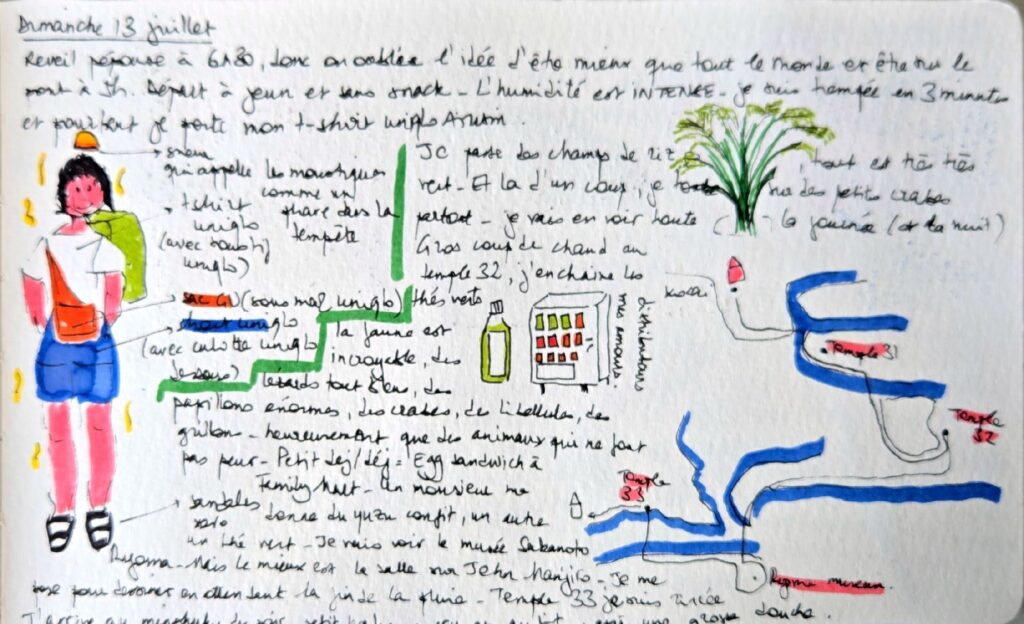 Dimanche 13 juillet
Reveil pépouse à 6h30, donc on oublie l'idée d'être mieux que tout le monde et être sur le
pont à 5h. Départ à jeun et sans snack - L'humidité est INTENSE - je suis trempée en 3 minutes
et pourtant je porte mon t-shirt uniqlo Airism.
sueur
qui appelle les moustiques
comme un
phare dans la
tempête
t-shirt
uniqlo
(avec
uniqlo)
SAC GU (sous mal uniqlo)
short uniqlo
(avec culotte uniqlo
dessous)
sandales
xero
JC passe des champs de riz, tout est très très
vert - Et là d'un coup, je vu des petits crabes
partout - je vais en voir toute la journée (et la nuit)
Gros coup de chaud au
temple 32, j'enchaîne les
thés verts
la faune est
incroyable, des
lézards tout bleus, des
papillons énormes, des crabes, des libellules, des
grillons - heureusement que des animaux qui ne font
pas peur - Petit dej/déj = Egg sandwich à
Family Mart - Un monsieur me
donne du yuzu confit, un autre
un thé vert - Je vais voir le musée Sakamoto
Ryoma - Mais le mieux est la salle sur John Manjiro - Je me
pose pour dessiner en attendant la fin de la pluie - Temple 33 je suis
distributeurs
mes amours
Kochi
Temple 31
Temple 32
Temple
33
Ryoma museum
J'arrive au petit une grosse douche.